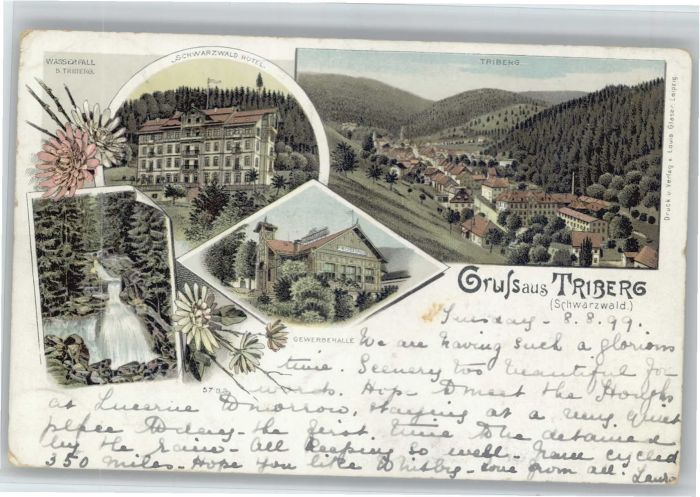 WASSERFALL
B. TRIBERG.
SCHWARZWALD-HOTEL.
TRIBERG.
Druck u. Verlag v. Louis Glaser, Leipzig.
GEWERBEHALLE
Gruss aus TRIBERG
(Schwarzwald.)
Tuesday - 8.8.99.
We are having such a glorious
time. Scenery too beautiful for
words. Hope to meet the
at Lucerne tomorrow, staying at a very quiet
place today - the first time to be detained
by the rain - All keeping so well - have cycled
350 miles - Hope you like Whitby - Love from all.